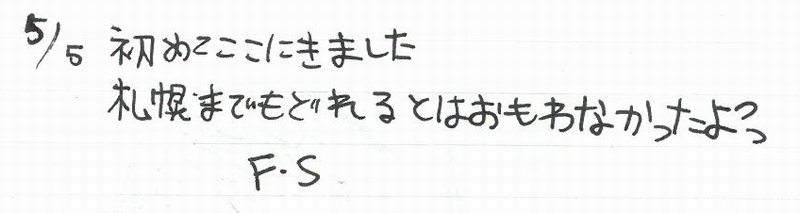 5/5 初めてここにきました
札幌までもどれるとはおもわなかったよっ
F.S